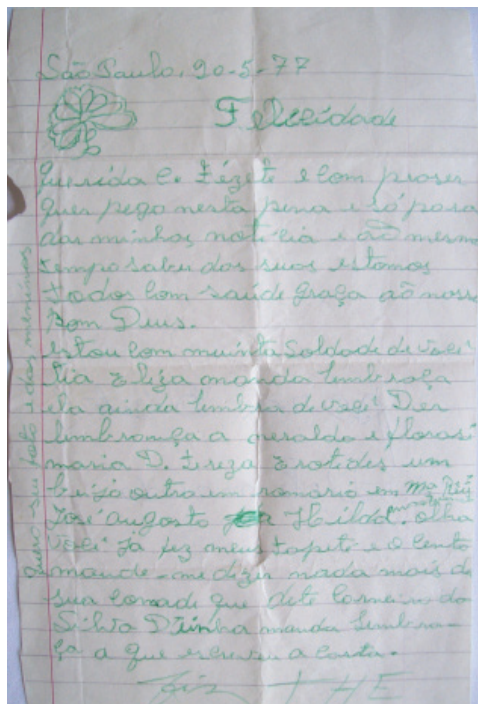 São Paulo, 20-5-77
Felicidade
Querida C. Izete e com praser
que pego nesta pena e só para
dar minhas noticia e aõ mesmo
tempo saber das suas estamos
todos com saúde graça aõ nosso
Bom Deus.
estou com muinta Soldade de voci
tia Eliza manda lembraça
ela ainda lembra de voci Der
lembrança a geraldo e
maria D. Ireza um
beijo outro em romario em
José augosto Hilda. olha
voci ja fez meus tapete e o cento
mande-me dizer nada mais da
sua comadi que
Silva Dzinha manda lembra-
ça a que escreveu a carta.
quero seu reto e dos meninos